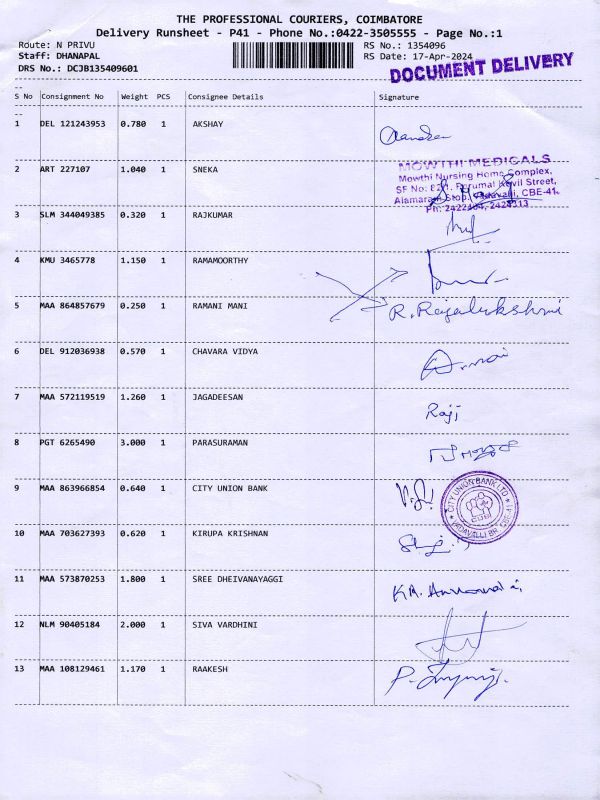 THE PROFESSIONAL COURIERS, COIMBATORE
Delivery Runsheet - P41 - Phone No.:0422-3505555 - Page No.:1
Route: N PRIVU RS No.: 1354096
Staff: DHANAPAL RS Date: 17-Apr-2024
DRS No.: DCJB135409601
DOCUMENT DELIVERY
--
S No Consignment No Weight PCS Consignee Details Signature
--
1 DEL 121243953 0.780 1 AKSHAY
2 ART 227107 1.040 1 SNEKA
MOWTHI MEDICALS
Mowthi Nursing Home Complex,
SF No: Perumal Kovil Street,
Alamaram Stop, Vadavalli, CBE-41.
Ph:
3 SLM 344049385 0.320 1 RAJKUMAR
4 KMU 3465778 1.150 1 RAMAMOORTHY
5 MAA 864857679 0.250 1 RAMANI MANI R. Rajalukshmi
6 DEL 912036938 0.570 1 CHAVARA VIDYA
7 MAA 572119519 1.260 1 JAGADEESAN Raji
8 PGT 6265490 3.000 1 PARASURAMAN
9 MAA 863966854 0.640 1 CITY UNION BANK
CITY UNION BANK LTD
VADAVALLI BR. CBE-41
CUB
10 MAA 703627393 0.620 1 KIRUPA KRISHNAN
11 MAA 573870253 1.800 1 SREE DHEIVANAYAGGI
12 NLM 90405184 2.000 1 SIVA VARDHINI
13 MAA 108129461 1.170 1 RAAKESH